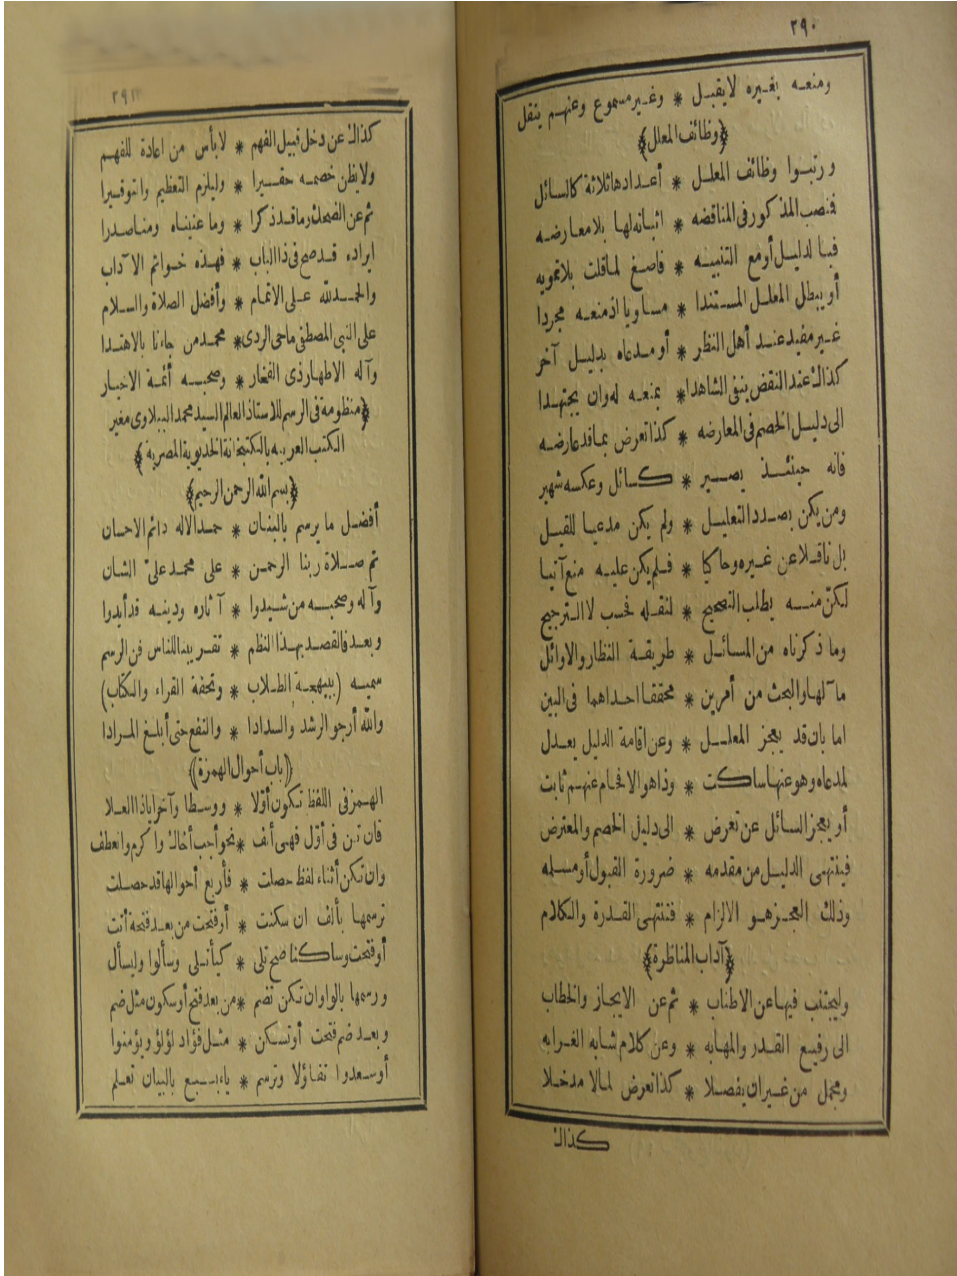 ٢٩٠
ومنعه بغيره لا يقبل * وغير مسموع وعنهم ينقل
﴿وظائف المعلل﴾
ورتبوا وظائف المعلل * أعدادها ثلاثة كالسائل
فنصب المذكور فى المناقضه * اثباته لها بلا معارضه
فبالدليل أو مع التنبيه * فاصغ لما قلت بلا تمويه
أو يبطل المعلل المستندا * مساويا اذ منعه مجردا
غير مفيد عند أهل النظر * أو مدعاه بدليل آخر
كذاك عند النقض ينفى الشاهدا * بمنعه له وان يجتهدا
الى دليل الخصم فى المعارضه * كذا تعرض بما قد عارضه
فانه حينئذ يصير * كسائل وعكسه شهير
ومن يكن بصدد التعليل * ولم يكن مدعيا للقيل
بل ناقلا عن غيره وحاكيا * فلم يكن عليه منع آتيا
لكن منه يطلب التصحيح * لنقله فحسب لا الترجيح
وما ذكرناه من المسائل * طريقة النظار والاوائل
مآ لها والبحث من أمرين * محققا احداهما فى البين
اما بان قد يعجز المعلل * وعن اقامة الدليل يعدل
لمدعاه وهو عنها ساكت * وذا هو الافحام عنهم ثابت
أو يعجز السائل عن تعرض * الى دليل الخصم والمعترض
فينتهى الدليل من مقدمه * ضرورة القبول أو مسلمه
وذلك العجز هو الالزام * فتنتهى القدرة والكلام
﴿آداب المناظرة﴾
وليجتنب فيها عن الاطناب * ثم عن الايجاز والخطاب
الى رفيع القدر والمهابه * وعن كلام شابه الغرابه
ومجمل من غير ان يفصلا * كذا تعرض لما لا مدخلا
كذاك
٢٩١
كذاك عن دخل قبيل الفهم * لا بأس من اعادة للفهم
ولا يظن خصمه حقيرا * وليلزم التعظيم والتوقيرا
ثم عن الضحك وما قد ذكرا * وما عنيناه ومنا صدرا
ايراده قد صح فى ذا الباب * فهذه خواتم الآداب
والحمد لله على الاتمام * وأفضل الصلاة والسلام
على النبى المصطفى ماحى الردى * محمد من جاءنا بالاهتدا
وآله الاطهار ذى الفخار * وصحبه أئمة الاخيار
﴿منظومة فى الرسم للاستاذ العالم السيد محمد الببلاوى مغير
الكتب العربيه بالكتبخانة الخديوية المصرية﴾
﴿بسم الله الرحمن الرحيم﴾
أفضل ما يرسم بالبنان * حمد الاله دائم الاحسان
ثم صلاة ربنا الرحمن * على محمد علىّ الشان
وآله وصحبه من شيدوا * آثاره ودينه قد أيدوا
وبعد فالقصد بهذا النظم * تقريبنا للناس فن الرسم
سميته (ببهجة الطلاب * وتحفة القراء والكتاب)
والله أرجو الرشد والسدادا * والنفع حتى أبلغ المرادا
﴿باب أحوال الهمزة﴾
الهمز فى اللفظ تكون أوّلا * ووسطا وآخرا يا ذا العلا
فان ترن فى أول فهى ألف * نحو أجب أخاك وا كرم وانعطف
وان تكن أثناء لفظ حصلت * فأربع أحوالها قد حصلت
ترسمها بألف ان سكنت * أو فتحت من بعد فتحة أتت
أو فتحت وساكنا صح تلى * كيأتلى وسألوا وليسأل
ورسمها بالواو ان تكن تضم * من بعد فتح أو سكون مثل ضم
وبعد ضم فتحت أو تسكن * مثل فؤاد لؤلؤ ويؤمنوا
أو سعدوا تفاؤلا وترسم * ياء بسبع بالبيان تعلم